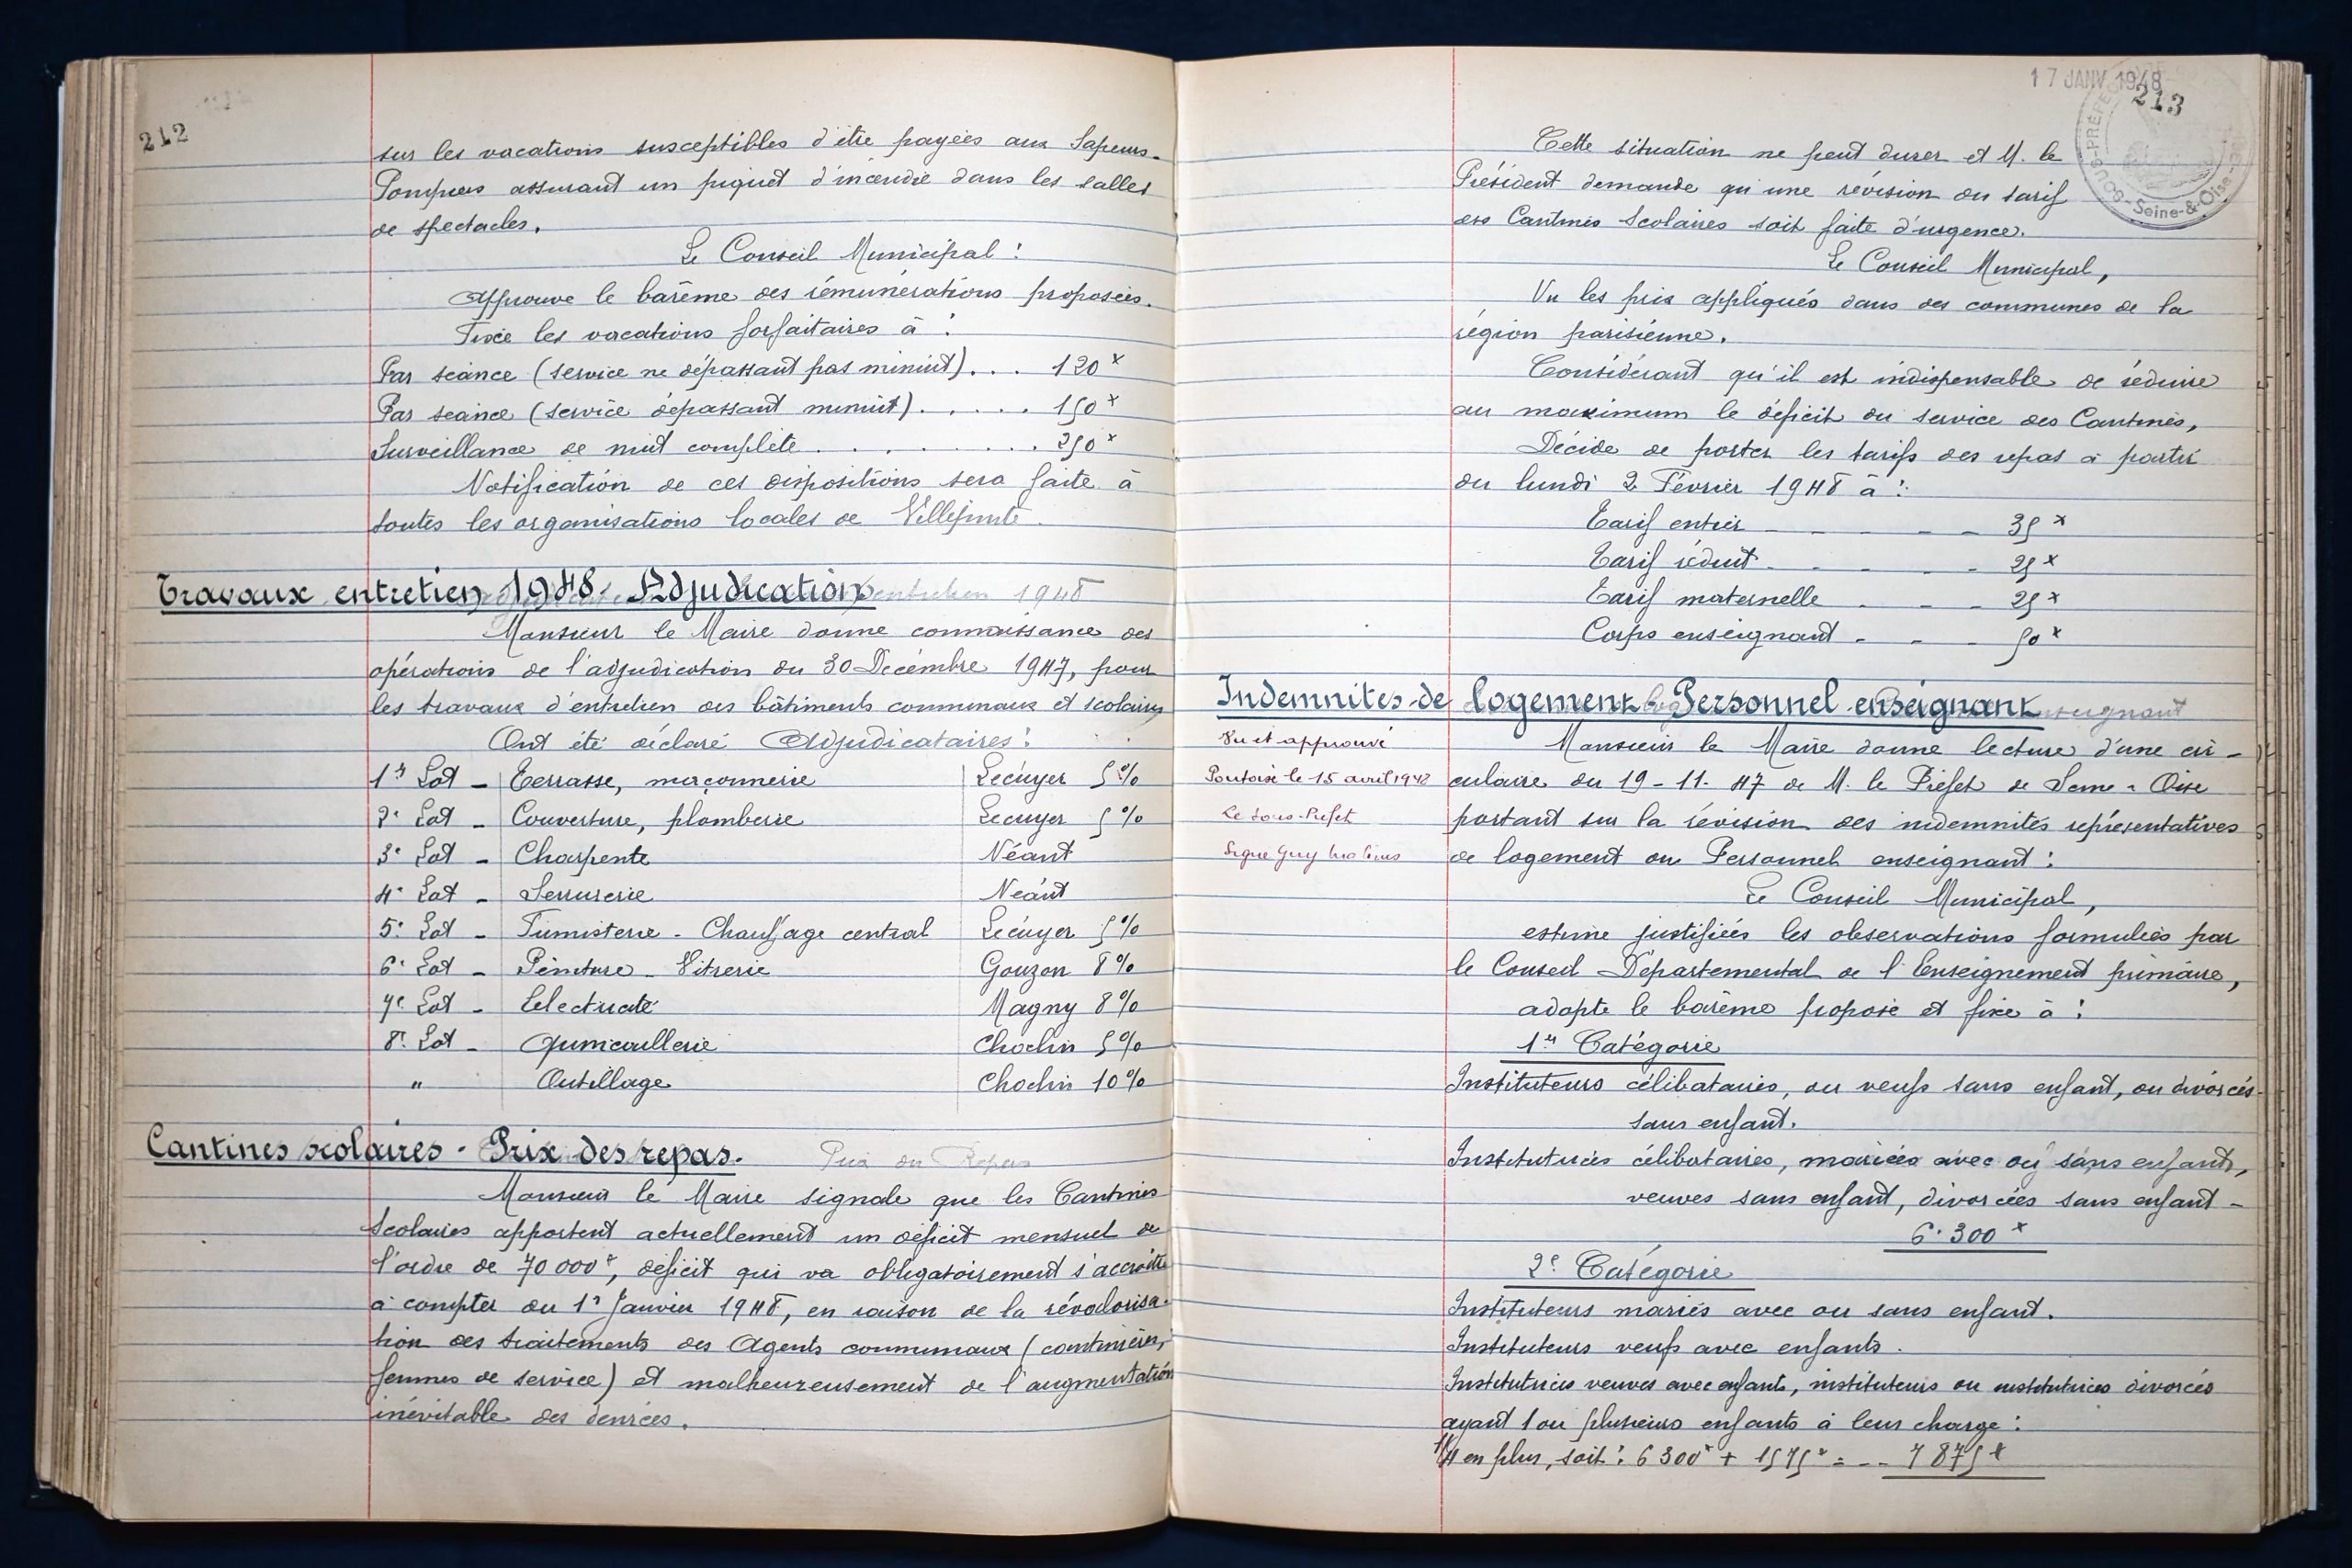 212
sur les vacations susceptibles d'être payées aux Sapeurs-
Pompiers assurant un piquet d'incendie dans les salles
de spectacles.
Le Conseil Municipal :
Approuve le barême des rémunérations proposées.
Fixe les vacations forfaitaires à :
Par séance (service ne dépassant pas minuit). . . 120 x
Par séance (service dépassant minuit). . . . . 150 x
Surveillance de nuit complète . . . . . . . . 250 x
Notification de ces dispositions sera faite à
toutes les organisations locales de Villepinte.
Travaux entretien 1948. Adjudication
entretien 1948
Monsieur le Maire donne connaissance des
opérations de l'adjudication du 30 Décembre 1947, pour
les travaux d'entretien des bâtiments communaux et scolaires
Ont été déclaré Adjudicataires :
1er Lot - Terrasse, maçonnerie Lécuyer 5%
2e Lot - Couverture, plomberie Lecuyer 5%
3e Lot - Charpente Néant
4e Lot - Serrurerie Néant
5e Lot - Fumisterie - Chauffage central Lécuyer 5%
6e Lot - Peinture - Vitrerie Gouzon 8%
7e Lot - Electricité Magny 8%
8e Lot - Quincaillerie Chochin 5%
" Outillage Chochin 10%
Cantines scolaires - Prix des repas.
Prix du Repas
Monsieur le Maire signale que les Cantines
Scolaires apportent actuellement un déficit mensuel de
l'ordre de 70 000 x, déficit qui va obligatoirement s'accroître
à compter du 1r Janvier 1948, en raison de la révalorisa-
tion des traitements des Agents communaux (cantinière,
femmes de service) et malheureusement de l'augmentation
inévitable des denrées.
17 JANV 1948
213
SOUS-PRÉFECTURE
Seine-&-Oise
Cette situation ne peut durer et M. le
Président demande qu'une révision du tarif
des Cantines Scolaires soit faite d'urgence.
Le Conseil Municipal,
Vu les prix appliqués dans des communes de la
région parisienne.
Considérant qu'il est indispensable de réduire
au maximum le déficit du service des Cantines,
Décide de porter les tarifs des repas à partir
du lundi 2 Février 1948 à :
Tarif entier - - - - - 35 x
Tarif réduit - - - - - 25 x
Tarif maternelle - - - 25 x
Corps enseignant - - - 50 x
Indemnités de logement - Personnel enseignant
enseignant
Vu et approuvé
Pontoise le 15 avril 1948
Le Sous-Préfet
Signé Guy
Monsieur le Maire donne lecture d'une cir-
culaire du 19-11-47 de M. le Préfet de Seine & Oise
portant sur la révision des indemnités représentatives
de logement au Personnel enseignant :
Le Conseil Municipal,
estime justifiées les observations formulées par
le Conseil Départemental de l'Enseignement primaire,
adopte le barême proposé et fixe à :
1re Catégorie
Instituteurs célibataires, ou veufs sans enfant, ou divorcés
sans enfant.
Institutrices célibataires, mariées avec ou sans enfants,
veuves sans enfant, divorcées sans enfant -
6.300 x
2e Catégorie
Instituteurs mariés avec ou sans enfant.
Instituteurs veufs avec enfants.
Institutrices veuves avec enfants, instituteurs ou institutrices divorcés
ayant 1 ou plusieurs enfants à leur charge :
1/4 en plus, soit : 6 300 x + 1575 x = - - 7 875 x